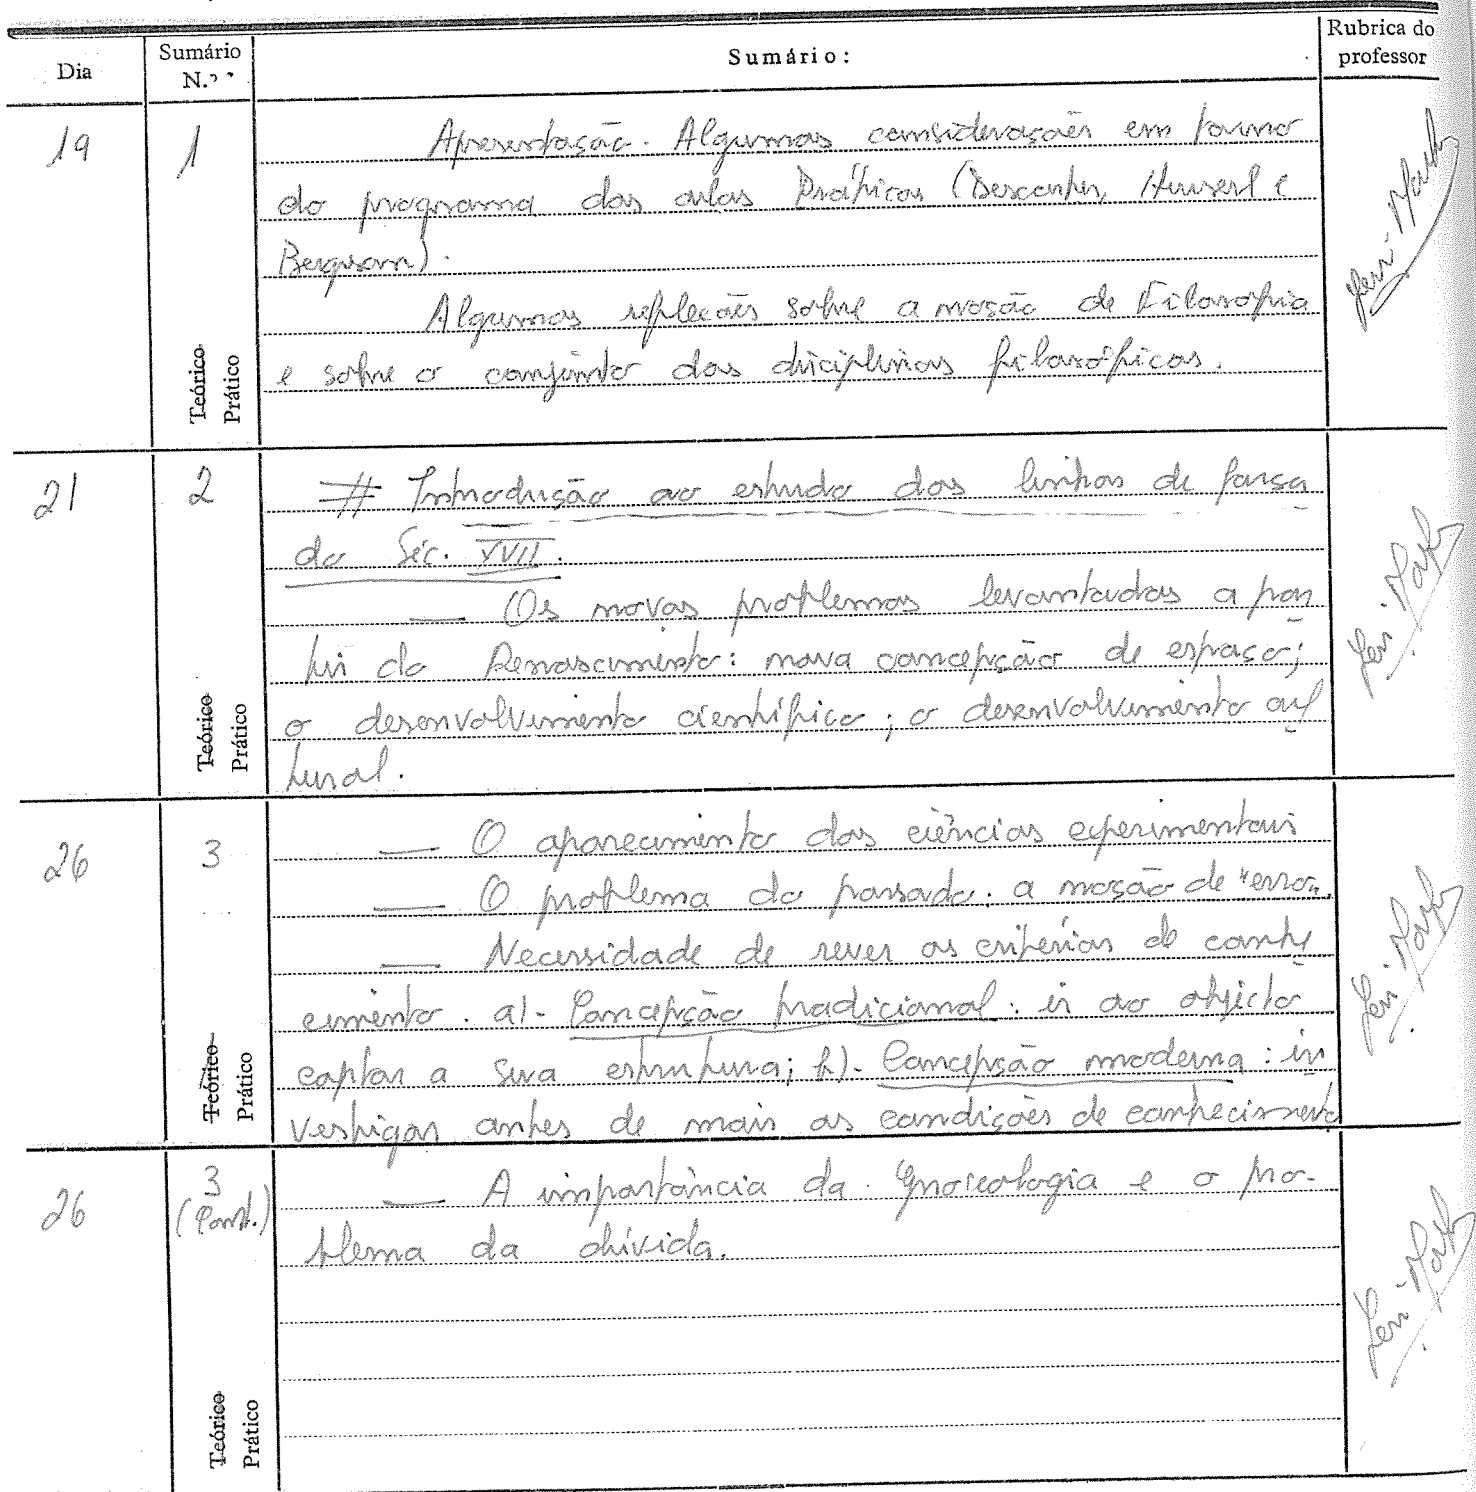 Dia
Sumário
N.º
Sumário:
Rubrica do
professor
19
1
Apresentação. Algumas considerações em torno
do programa das aulas Práticas (Descartes, Husserl e
Bergson).
Algumas reflecões sobre a noção de Filosofia
e sobre o conjunto das disciplinas filosóficas.
Teórico
Prático
21
2
# Introdução ao estudo das linhas de força
do Séc. XVII.
— Os novos problemas levantados a par
tir do Renascimento: nova concepção de espaço;
o desenvolvimento científico; o desenvolvimento cul
tural.
Teórico
Prático
26
3
— O aparecimento das ciências experimentais
— O problema do passado: a noção de "erro".
— Necessidade de rever os critérios de conhe
cimento. a)- Concepção tradicional: ir ao objecto
captar a sua estrutura; b)- Concepção moderna: in
vestigar antes de mais as condições de conhecimento
Teórico
Prático
26
3
(Cont.)
— A importância da Gnoseologia e o pro-
blema da dúvida.
Teórico
Prático